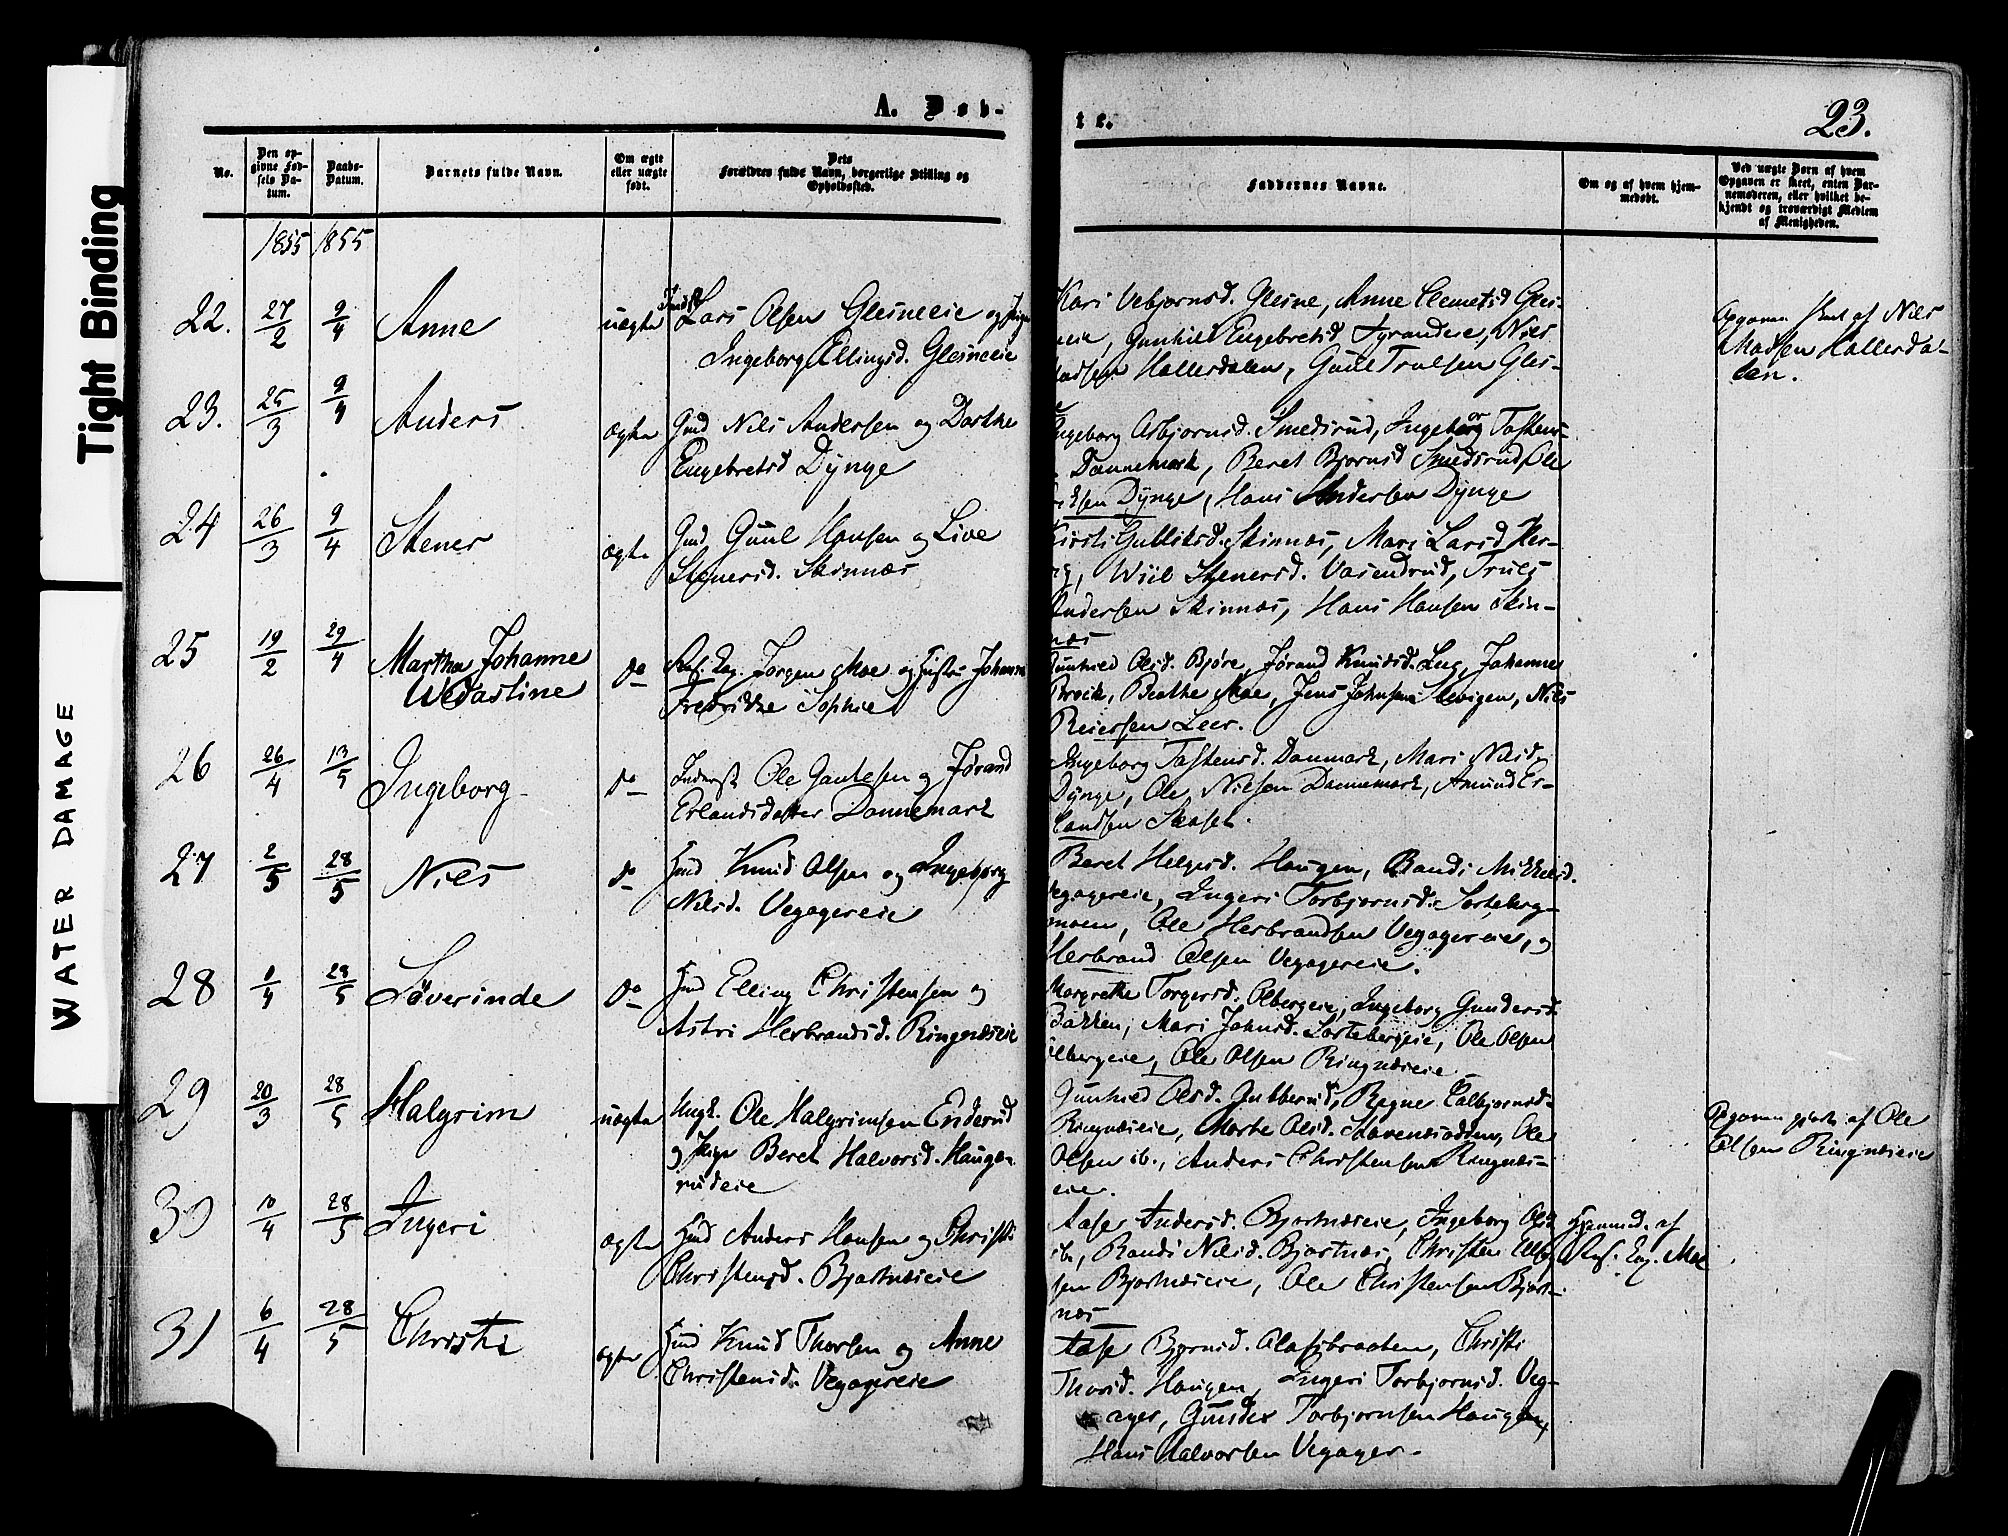 Tight Binding
WATER DAMAGE
A. Døb-
te.
23.
No.
Den op-
givne Fød-
sels Da-
tum.
Daabs-
Datum.
Barnets fulde Navn.
Om ægte
eller uægte
født.
Dets
Forældres fulde Navn, borgerlige Stilling og
Opholdssted.
Faddernes Navne.
Om og af hvem hjem-
medøbt.
Ved uægte Børn af hvem
Opgaven er skeet, enten Bar-
nemoderen, eller hvilket be-
kjendt og troværdigt Medlem
af Menigheden.
1855 1855
22. 27/2 9/4 Anne uægte Lars Olsen Glesneeie og Pige
Ingeborg Ellingsd. Glesneeie
Kari Vebjørnsd. Glesne, Anne Clemetsd Gles-
neeie, Gunhild Engebretsd. Nils
Madsen Hallersdalen, Guul Trulsen Gles-
Opgaven af Nils
Madsen Hallersda-
len.
23. 25/3 9/4 Anders ægte Gmd Nils Andersen og Dorthe
Engebretsd Dynge
Ingeborg Asbjørnsd. Smedsrud, Ingeborg Tostens-
Dannemark, Beret Bjørnsd Smedsrud, Ole
Dynge, Hans Andersen Dynge
24 26/3 9/4 Stener ægte Gmd. Guul Hansen og Live
Stenersd. Skinnæs
Kirsti Gulliksd. Skinnæs, Mari Larsd Ber-
g, Wiil Stenersd. Vasendrud, Truls
Andersen Skinnæs, Hans Hansen Skin-
næs
25 19/2 29/4 Martha Johanne
Wedastine
do Res. Cap. Jørgen Moe og Hustru Johanne
Fredrikke Sophie
Gunhild Olsd. Bjøre, Jørand Knudsd. Lug, Johannes
Brock, Beathe Moe, Jens Johnsen Stevigen, Niels
Reiersen Leer.
26 26/4 13/5 Ingeborg do Inderst Ole Gautesen og Jørand
Erlandsdatter Dannemark
Ingeborg Tostensd. Danmark, Mari Nilsd.
Dynge, Ole Nilsen Dannemark, Amund Er-
landsen
27 2/5 28/5 Niels do Hmd Knud Olsen og Ingeborg
Nilsd. Vegagereie
Beret Helgesd. Haugen, Randi Mikkelsd.
Vegagereie, Ingeri Torbjørnsd. Sorteberg-
moen, Ole Herbrandsen Vegagereie, og
Herbrand Olsen Vegagereie.
28 1/4 28/5 Søverinde do Hmd Elling Christensen og
Astri Herbrandsd. Ringnæseie
Margrethe Torgersd. Olbergeie, Ingeborg Gundersd.
Bakken, Mari Johnsd. Sortebergeie, Ole Olsen
Olbergeie, Ole Olsen Ringnæseie
29 20/3 28/5 Halgrim uægte Ungk. Ole Halgrimsen Enderud
og Pige Beret Halvorsd. Haugen-
rudeie
Gunhild Olsd. Gubberud, Ragne Colbjørnsd.
Ringnæseie, Marte Olsd. Ole
Olsen ib., Anders Christensen Ringnæs-
eie.
Opgaven gjort af Ole
Olsen Ringnæseie
30 10/4 28/5 Ingeri ægte Hmd Anders Hansen og Christi
Christensd. Bjørtnæseie
Aase Andersd. Bjørtnæseie, Ingeborg Olsd
ib., Randi Nilsd. Bjørtnæs, Christen Elling-
sen Bjørtnæseie, Ole Christensen Bjørt-
næs
Hjemmed. af
Res. Cap. Moe
31 6/4 28/5 Christi ægte Hmd Knud Thorsen og Anne
Christensd. Vegagereie
Aase Bjørnsd. Olasibraaten, Christi
Thorsd. Haugen, Ingeri Torbjørnsd. Veg-
ager, Gunder Torbjørnsen Haugen,
Hans Halvorsen Vegager.